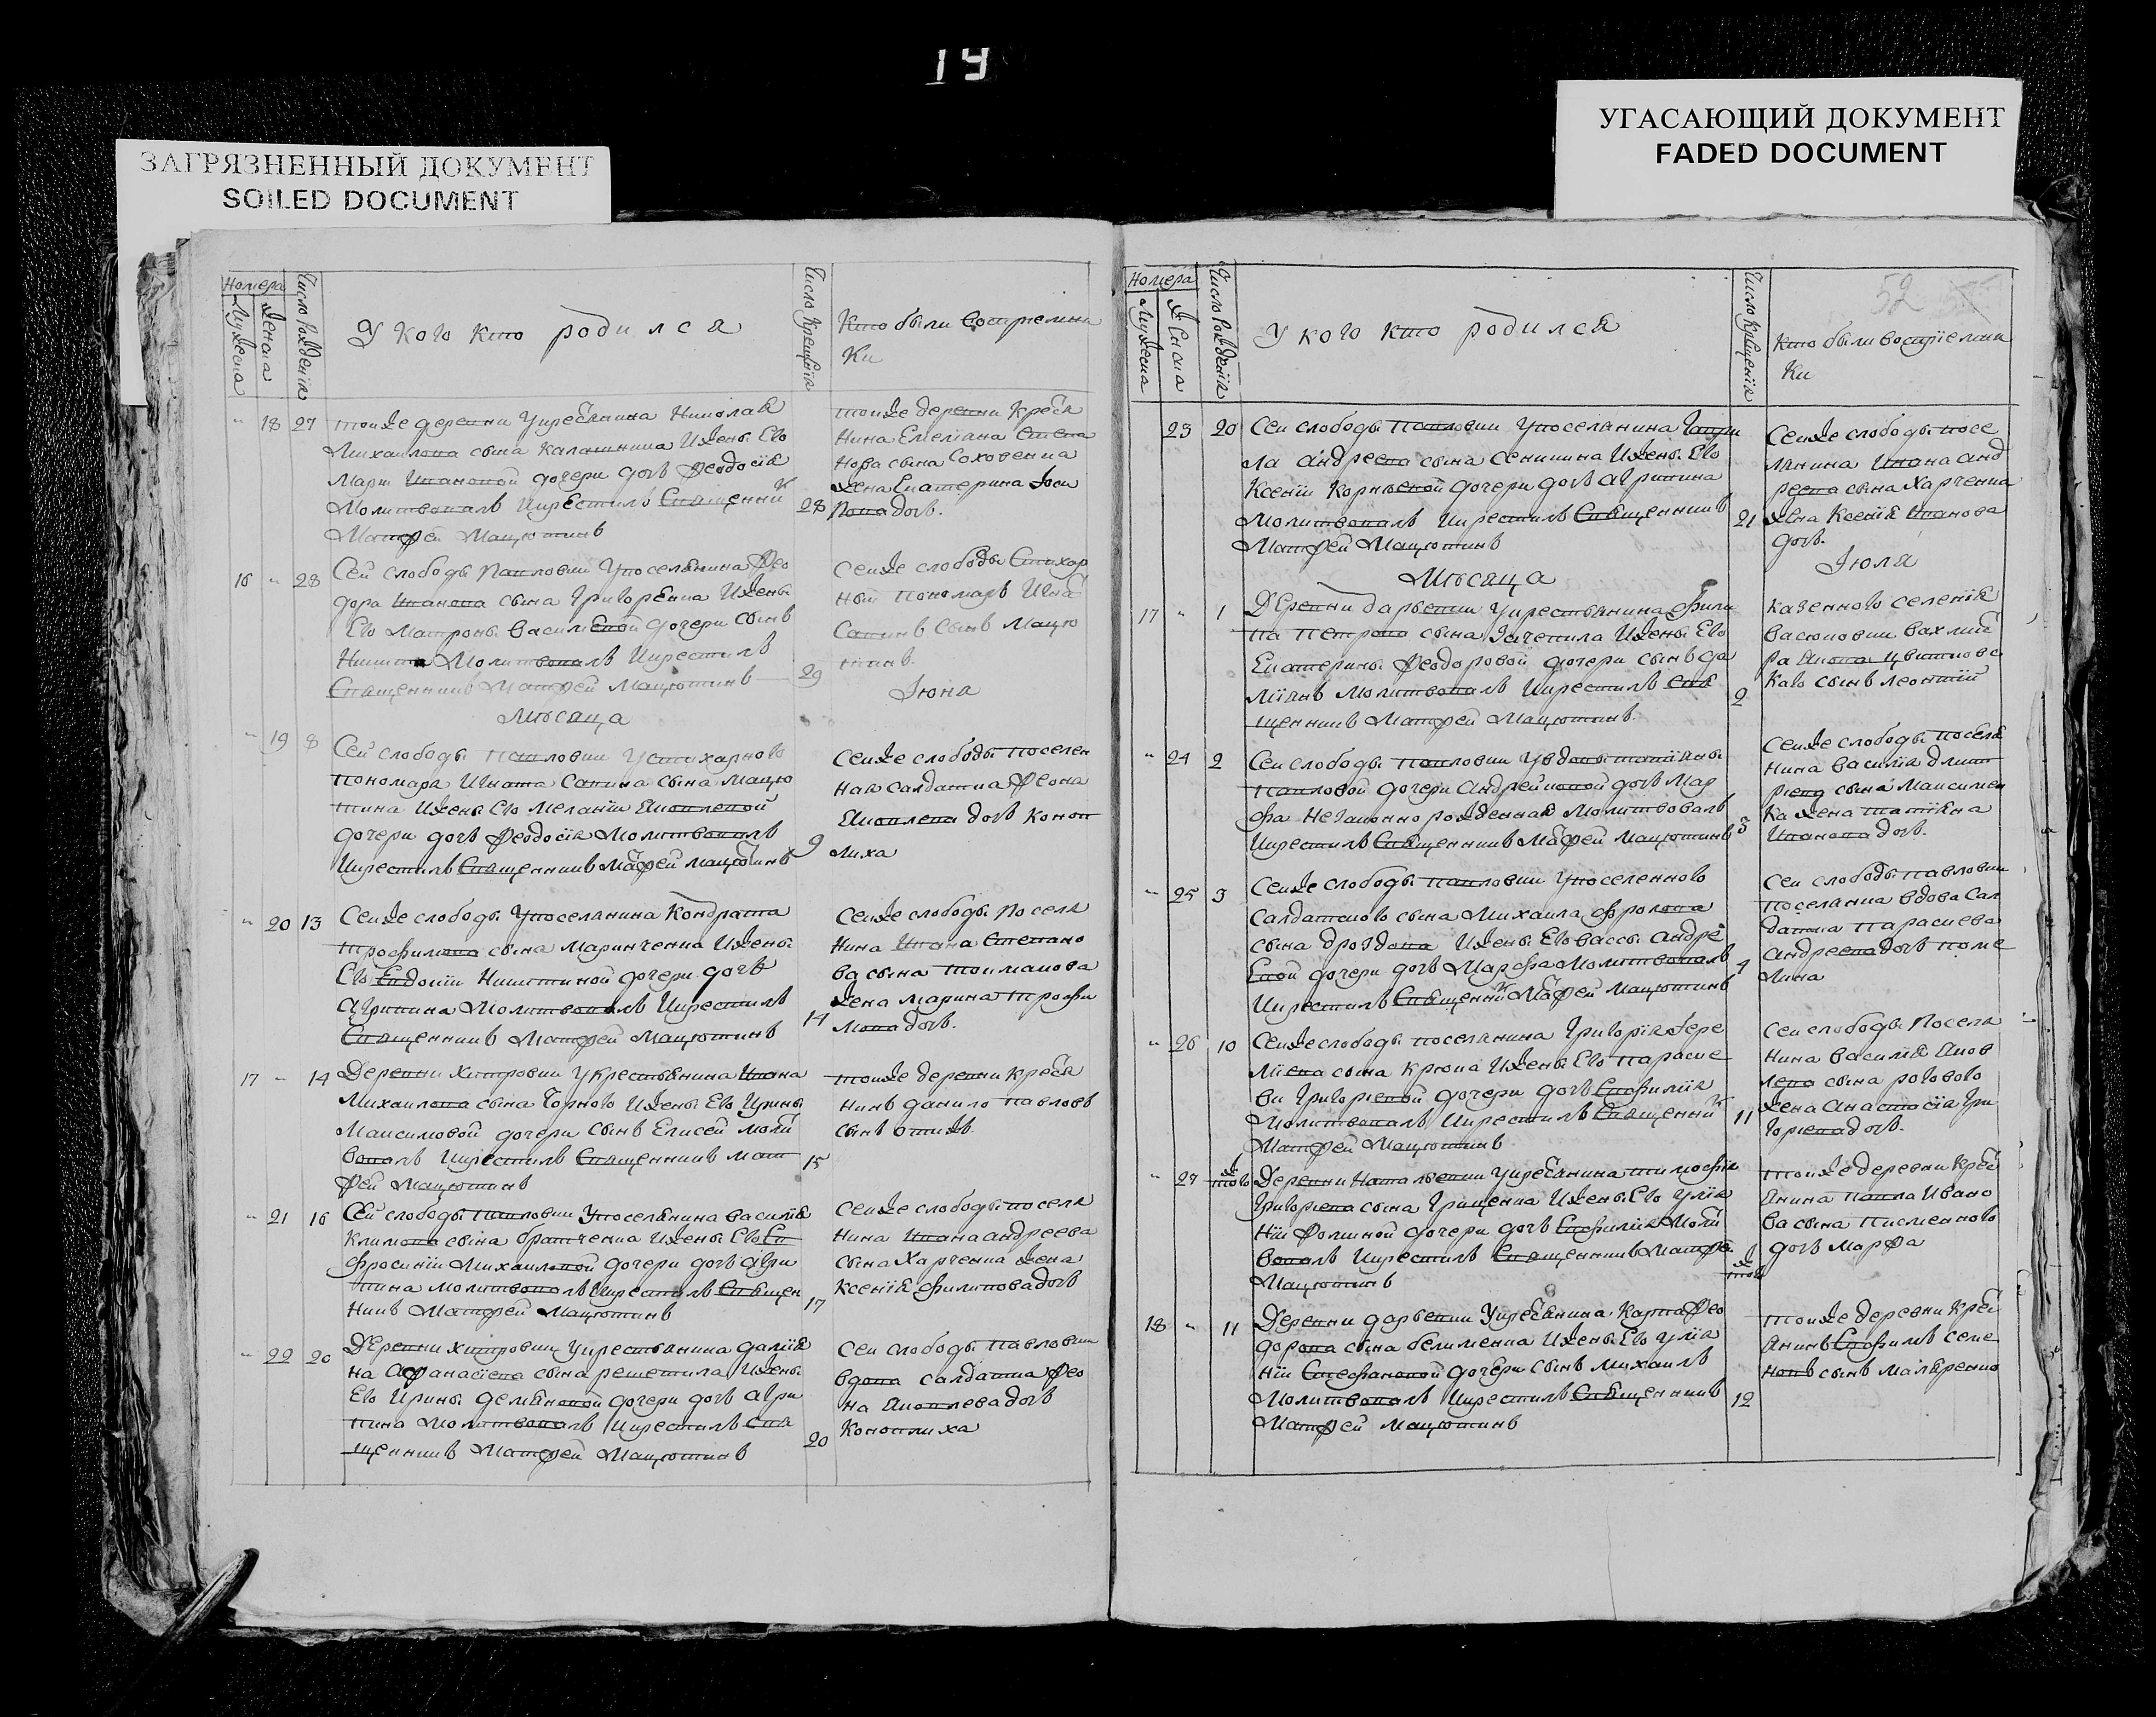 14
ЗАГРЯЗНЕННЫЙ ДОКУМЕНТ
SOILED DOCUMENT
УГАСАЮЩИЙ ДОКУМЕНТ
FADED DOCUMENT
Номера
Мужеска
Женска
Число рожденія
У кого кто родился
Число крещенія
Кто были восприемни
ки
18 27 тоиже деревни укресьянина Николая
Михаилова сына Калашника ижены Ево
Марѳи Ивановой дочери дочь Феодосія
Молитвовалъ икрестилъ Священник 28
Матфей Мацютинъ
тоиже деревни кресья
нина Емелiана Степа
нова сына Соховенка
жена Екатерина
дочь.
16 28 Сей слободы Павловки упоселянина Фео
дора Иванова сына Григоренка ижены
Ево Матроны Василiевой дочери сынъ
Никита Молитвовалъ икрестилъ
Священникъ Матфей Мацютинъ 29
Сеиже слободы Стихар
ный пономарь Игна
Савинъ сынъ Мацю
тинъ.
Мѣсяца Іюня
19 8 Сей слободы Павловки устихарного
пономаря Игната Савина сына Мацю
тина ижены Ево Меланіи Яковлевой
дочери дочь Феодосія Молитвовалъ
икрестилъ Священникъ Матфей Мацютинъ 9
Сеиже слободы поселен
ная салдатка Феона
Яковлева дочь Коноп
лиха
20 13 Сеиже слободы упоселянина Кондрата
Трофимова сына Маринченка ижены
Ево Евдокіи Никитиной дочери дочь
Агрипина Молитвовалъ икрестилъ
Священникъ Матфей Мацютинъ 14
Сеиже слободы поселя
нина Ивана Степано
ва сына Токмакова
жена Марина Трофи
мова дочь.
17 14 Деревни Хитровки укрестьянина Ивана
Михаилова сына Чорного ижены Ево Ирины
Максимовой дочери сынъ Елисей моли
вовалъ икрестилъ Священникъ Мат 15
фей Мацютинъ
тоиже деревни кресья
нинъ Данило Павловъ
сынъ
21 16 Сей слободы Павловки упоселянина Василія
Климова сына Братченка ижены Ево Ев
фросиніи Михаиловой дочери дочь Агри
пина Молитвовалъ икрестилъ Священ 17
никъ Матфей Мацютинъ
Сеиже слободы поселя
нина Ивана Андреева
сына Харченка жена
Ксенія Филипова дочь
22 20 Деревни Хитровки укрестьянина Даміа
на Афанасіева сына Решетила ижены
Ево Ирины Демяновой дочери дочь Агри
пина Молитвовалъ икрестилъ Свя
щенникъ Матфей Мацютинъ 20
Сеи слободы Павловки
вдова салдатка Фео
на Яковлева дочь
Коноплиха
52
Номера
Мужеска
Женска
Число рожденія
У кого кто родился
Число крещенія
Кто были восприемни
ки
23 20 Сеи слободы Павловки упоселянина Гаври
ла Андреева сына Сенкина ижены Ево
Ксеніи Корнѣевой дочери дочь Агрипина
Молитвовалъ икрестилъ Священникъ 21
Матфей Мацютинъ
Сеиже слободы посе
лянина Ивана Анд
реева сына Харченка
жена Ксенія Иванова
дочь.
Мѣсяца Іюля
17 1 Деревни Дарьевки укрестьянина Фили
па Петрова сына Зачепила ижены Ево
Екатерины Феодоровой дочери сынъ Да
міянъ Молитвовалъ икрестилъ Свя 2
щенникъ Матфей Мацютинъ.
Казенного селенія
Васюковки вахмист
ра Якова Цвитковс
каго сынъ Леонтій
24 2 Сеи слободы Павловки увдовы Татіяны
Павловой дочери Андрейковой дочь Мар
фа Незаконно рожденная Молитвовалъ
икрестилъ Священникъ Матфей Мацютинъ 3
Сеиже слободы поселя
нина Василія Дмит
ріева сына Максимен
ка жена Татіяна
Иванова дочь.
25 3 Сеиже слободы Павловки упоселенного
салдатского сына Михаила Фролова
сына Дроздова ижены Ево Вассы Андре
евой дочери дочь Марфа Молитвовалъ 4
икрестилъ Священник Матфей Мацютинъ
Сеи слободы Павловки
поселянка вдова Сал
датка Параскева
Андреева дочь Поме
лина
26 10 Сеиже слободы поселянина Григорія Іере
міева сына Крюка ижены Ево Параске
ви Григорiевой дочери дочь Евфимія
Молитвовалъ икрестилъ Священник 11
Матфей Мацютинъ
Сеи слободы поселя
нина Василія Яков
лева сына Рогового
жена Анастасія Гри
горiева дочь.
27 Деревни Натальевки укресьянина Тимофѣя
Григорiева сына Грищенка ижены Ево Улія
ніи Фоминой дочери дочь Евфимія Моли
вовалъ икрестилъ Священникъ Матфей
Мацютинъ
тоиже деревни крес
янина Павла Ивано
ва сына Писменного
дочь Марфа
18 11 Деревни Дарьевки укресьянина Карпа Фео
дорова сына Белименка ижены Ево Улія
ніи Стефановой дочери сынъ Михаилъ
Молитвовалъ икрестилъ Священникъ 12
Матфей Мацютинъ
тоиже деревни крес
янинъ Евфимъ Семе
новъ сынъ